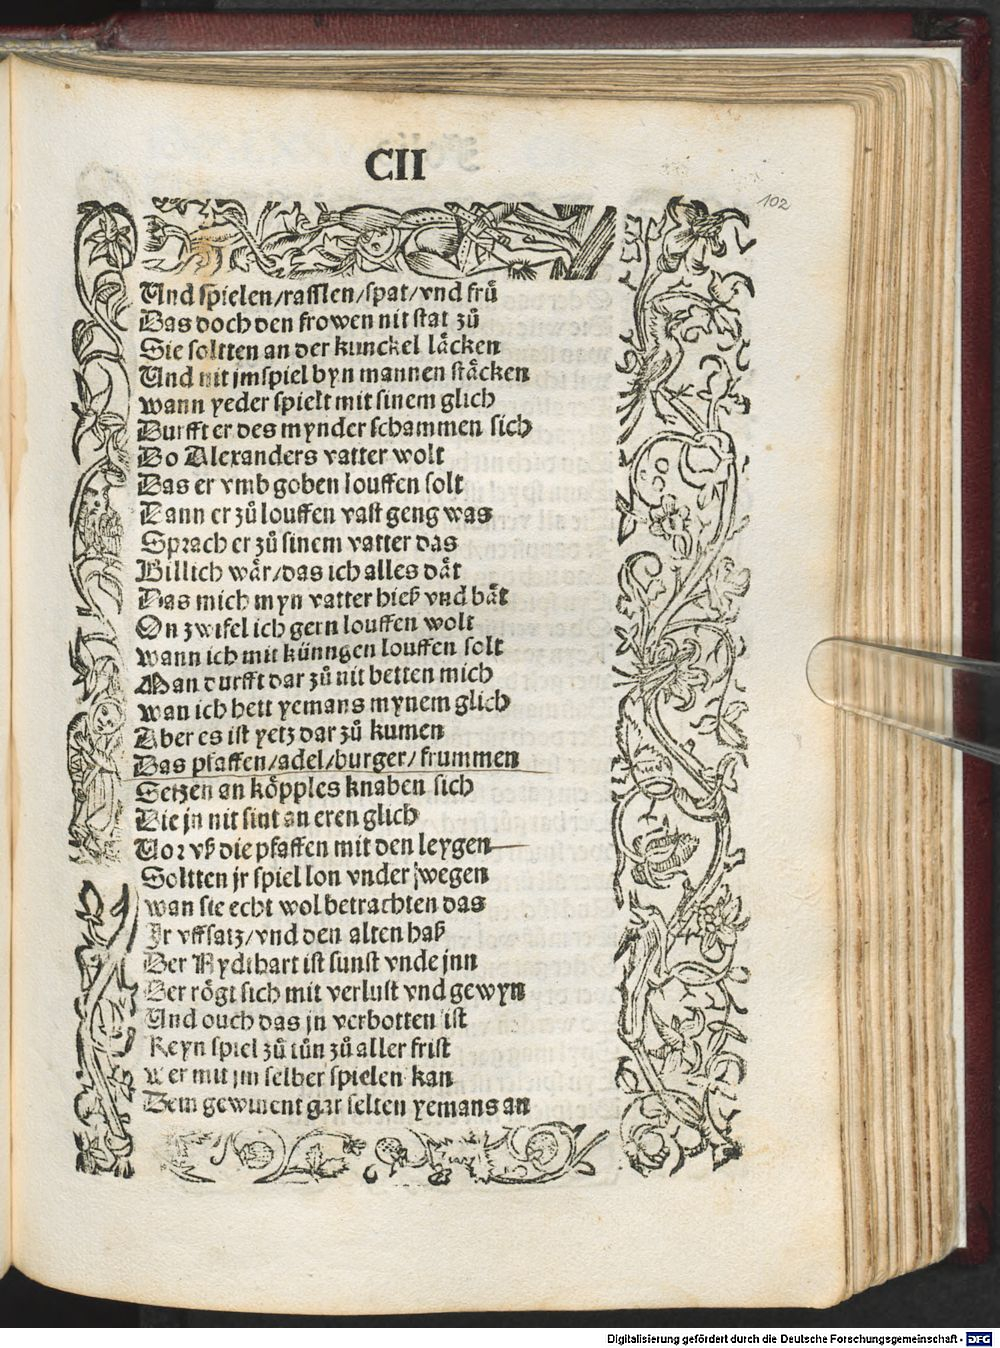 CII
102
Und spielen/rasslen/spat/vnd frü
Das doch den frowen nit stat zů
Sie soltten an der kunckel läcken
Und nit jm spiel byn mannen stäcken
wann yeder spielt mit sinem glich
Durfft er des mynder schammen sich
Do Alexanders vatter wolt
Das er vmb goben louffen solt
Dann er zů louffen vast geng was
Sprach er zů sinem vatter das
Billich wär/das ich alles dät
Das mich myn vatter hieß vnd bät
On zwifel ich gern louffen wolt
wann ich mit künngen louffen solt
Man durfft dar zů nit betten mich
wan ich hett yemans mynem glich
Aber es ist yetz dar zů kumen
Das pfaffen/adel/burger/frummen
Setzen an köpples knaben sich
Die jn nit sint an eren glich
Vor vß die pfaffen mit den leygen
Soltten jr spiel lon vnder wegen
wan sie echt wol betrachten das
Ir vffsatz/vnd den alten haß
Der Nydthart ist sunst vnde jnn
Der rögt sich mit verlust vnd gewyn
Und ouch das jn verbotten ist
Keyn spiel zů tůn zů aller frist
wer mit jm selber spielen kan
Dem gewinnt gar selten yemans an
Digitalisierung gefördert durch die Deutsche Forschungsgemeinschaft - DFG